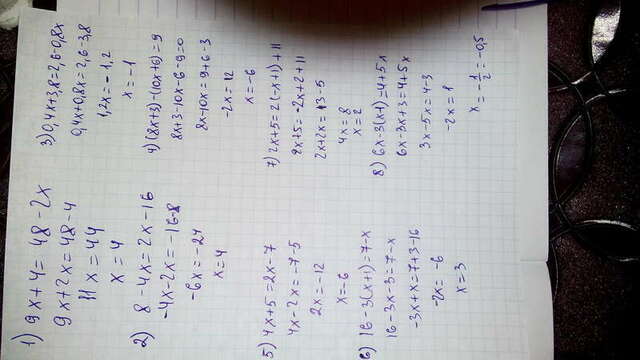 1) 9x+4=48-2x
9x+2x=48-4
11x=44
x=4
2) 8-4x=2x-16
-4x-2x=-16-8
-6x=-24
x=4
3) 0,4x+3,8=2,6-0,8x
0,4x+0,8x=2,6-3,8
1,2x=-1,2
x=-1
4) (8x+3)-(10x+6)=9
8x+3-10x-6-9=0
8x-10x=9+6-3
-2x=12
x=-6
5) 4x+5=2x-7
4x-2x=-7-5
2x=-12
x=-6
6) 16-3(x+1)=7-x
16-3x-3=7-x
-3x+x=7+3-16
-2x=-6
x=3
7) 2x+5=2(-x+1)+11
2x+5=-2x+2+11
2x+2x=13-5
4x=8
x=2
8) 6x-3(x-1)=4+5x
6x-3x+3=4+5x
3x-5x=4-3
-2x=1
x=-1/2=-0,5